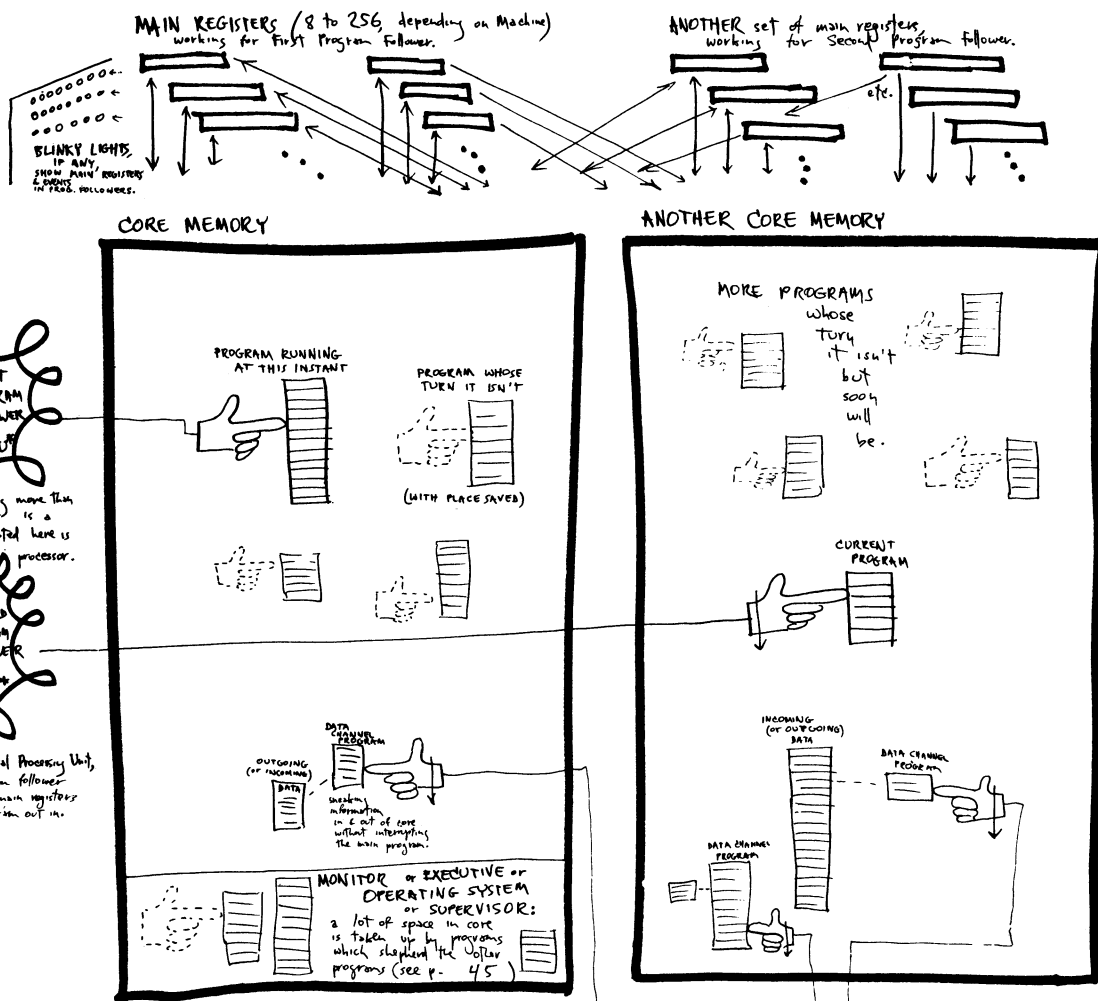 MAIN REGISTERS (8 to 256, depending on Machine)
working for First Program Follower.
ANOTHER set of main registers,
working for Second Program Follower.
etc.
BLINKY LIGHTS,
IF ANY,
SHOW MAIN REGISTERS
& EVENTS
IN PROG. FOLLOWERS.
CORE MEMORY
ANOTHER CORE MEMORY
PROGRAM RUNNING
AT THIS INSTANT
PROGRAM WHOSE
TURN IT ISN'T
(WITH PLACE SAVED)
MORE PROGRAMS
whose
turn
it isn't
but
soon
will
be.
more than
is a
here is
processor.
CURRENT
PROGRAM
al Processing Unit,
follower
main registers
out in.
DATA
CHANNEL
PROGRAM
OUTGOING
(OR INCOMING)
DATA
sneaking
information
in & out of core
without interrupting
the main program.
INCOMING
(OR OUTGOING)
DATA
DATA CHANNEL
PROGRAM
DATA CHANNEL
PROGRAM
MONITOR or EXECUTIVE or
OPERATING SYSTEM
or SUPERVISOR:
a lot of space in core
is taken up by programs
which shepherd the other
programs (see p. 45)